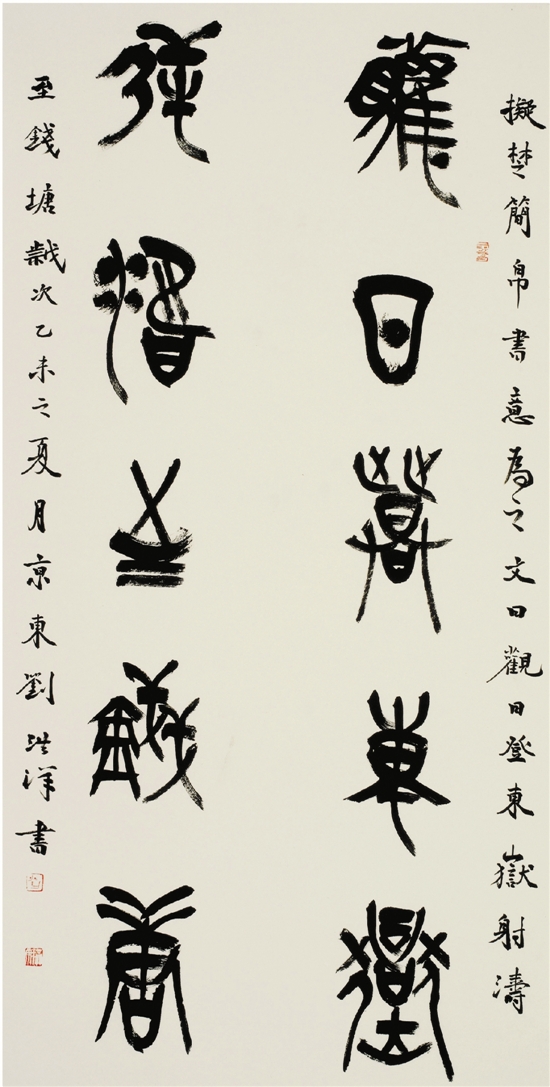 擬楚簡帛書意為之文曰觀日登東嶽射濤
觀日登東嶽
射濤至錢塘
至錢塘歲次乙未之夏月京東劉洪洋書